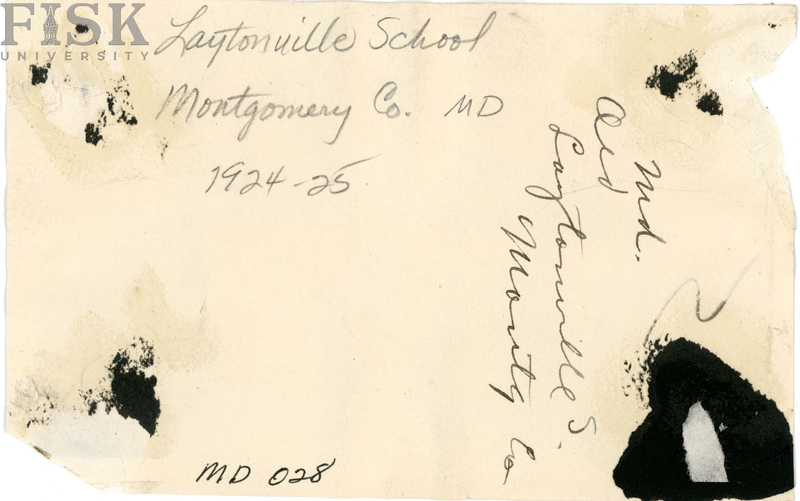 FISK
UNIVERSITY
Laytonville School
Montgomery Co. MD
1924-25
Md.
Aid
Laytonville S.
Montg Co
MD 028